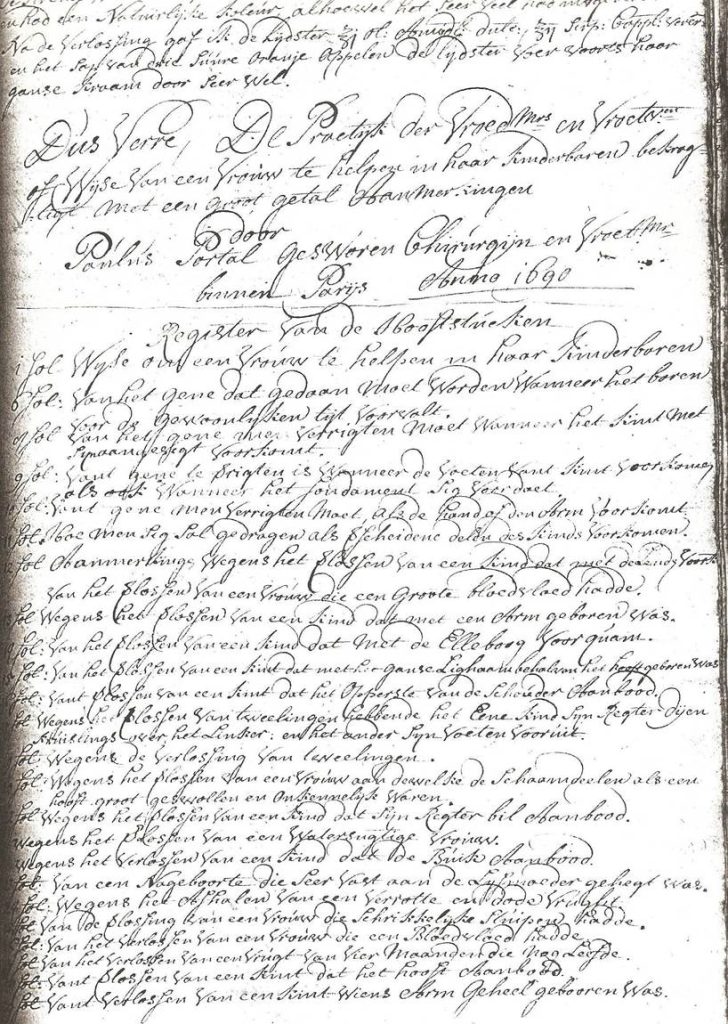 en had een Natuurlijke Koleur, alhoewel het Seer veel
Na de Verlossing gaf ik de Lijdster ol: Amigd: dulc:
en het Sap van drie Suure Oranje Appelen de lijdster Voer Voorts haar
ganse Kraam door Seer Wel.
Dus Verre, De Practijk der Vroed Mrs en Vroetv
of Wijse Van een Vrouw te helpen in haar Kinderbaren bekrag-
tigt Met een groot getal Aanmerkingen
door
Paulus Portal Gesworen Chirurgijn en Vroet Mr
binnen Parijs Anno 1690
Register Van de Hooftstucken
fol Wijse om een Vrouw te helpen in haar Kinderbaren
fol: Van het gene dat gedaan Moet Worden Wanneer het baren
Voor de gewoonlijken tijt Voorvalt.
fol Van het gene men Verrigten Moet Wanneer het Kint Met
Sijn aangesigt Voorkomt.
fol: Vant gene te Verigten is Wanneer de Voeten Vant Kint Voorkomen
als ook Wanneer het fondament Sig Voordoet.
fol: Vant gene Men Verrigten Moet, als de Hand of den Arm Voorkomt
fol: Hoe Men Sig Sal gedragen als Scheidene delen des Kinds Voorkomen.
fol Aanmerking Wegens het Vlossen Van een Kind dat met
Van het Vlossen Van een Vrouw die een Groote bloedvloed hadde.
fol Wegens het Vlossen Van een Kind dat met een Arm geboren Was.
fol: Van het Vlossen Van een Kind dat Met de Elleboog Voor quam.
fol: Van het Vlossen Van een Kint dat met het ganse Lighaam behalven het hooft geboren Was
fol: Vant Vlossen Van een Kint dat het Opperste Van de Schouder Aanbood.
fol Wegens het Vlossen Van tweelingen hebbende het Eene Kind Sijn Regter Dijen
Kruislings over het Linker: en het ander Sijn Voeten Vooruit.
fol: Wegens de Verlossing Van tweelingen.
fol: Wegens het Vlossen Van een Vrouw aan dewelke de Schaamdeelen als een
hooft groot geswollen en Onkennelijk Waren.
fol Wegens het Vlossen Van een Kind dat Sijn Regter bil Aanbood.
Wegens het Vlossen Van een Watersugtige Vrouw.
Wegens het Verlossen Van een Kind dat de Buik Aanbood.
fol: Van een Nageboorte die Seer Vast aan de Lijfmoeder gehegt Was.
fol: Wegens het Afhalen Van een Verrotte en dode Vrught.
fol Van De Vlossing Van een Vrouw die Schrikkelijke Stuipen hadde.
fol: Van het Verlossen Van een Vrouw die een Bloedvloed hadde.
fol: Van het Verlossen Van een Vrugt Van Vier Maanden die Nog Leefde.
fol: Vant Vlossen Van een Kint dat het hooft Aanbood.
fol Vant Verlossen Van een Kint Wiens Arm Geheel gebooren Was.